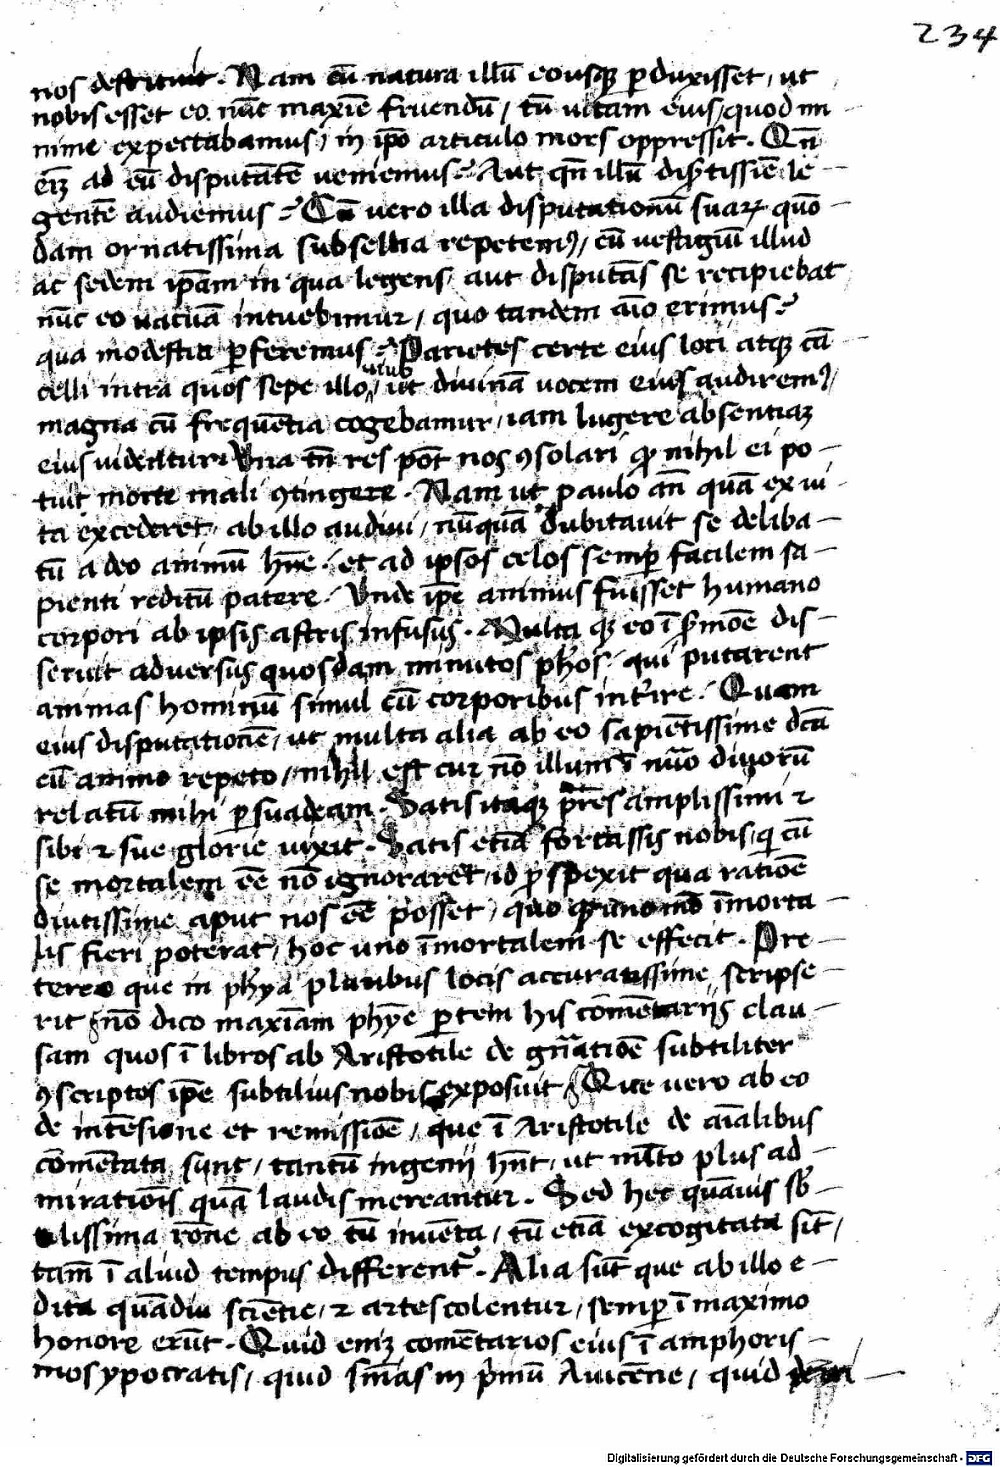 234
nos destituit. Nam cū natura illū eousqꝫ ꝑduxisset, ut
nobis esset eo nūc maxīe fruendū / tū uitam eius / quod mi
nime expectabamus / in ip̄o articulo mors oppressit. Qn̄
eīꝫ ad eū disputātē ueniemus? Aut qn̄ illū diẜtissīe le
gentē audiemus? Cū vero illa disputationū suaꝝ quō
dam ornatissima subsellia repetemꝯ / cū uestigiū illud
ac sedem ip̄am in qua legens aut disputās se recipiebat
nūc eo uacuā intuebimur / quo tandem aīo erimus?
qua modestia ꝑferemus? Parietes certe eius loci atqꝫ cā
celli intra quos sepe illo, ut diuinā uocem eius audiremꝯ /
magna cū frequētia cogebamur, iam lugere absentiaꝫ
eius uidentur. Vna tn̄ res pōt nos ꝯsolari ꝙ nihil ei po
tuit morte mali ꝯtingere. Nam ut paulo an̄ quā ex ui
ta excederet, ab illo audiui, nūquā dubitauit se deliba
tū a deo animū hr̄e. et ad ipsos celos semꝑ facilem sa
pienti reditū patere. Unde ip̄e animus fuisset humano
corpori ab ipsis astris infusus. Multa qꝫ eo ī ẜmōe dis
seruit aduersus quosdam minutos ph̄os, qui putarent
animas hominū simul cū corporibus int̄ire. Quam
eius disputationē, ut multa alia ab eo sapiētissime dc̄ā
cū animo repeto, nihil est cur nō illum ī nūo diuorū
relatū mihi ꝑsuadeam. Satis itaqꝫ pr̄es amplissimi ⁊
sibi ⁊ sue glorie uixit. Satis etiā fortassis nobis, qi cū
se mortalem eē nō ignoraret, id ꝓspexit qua ratiōe
diutissime aput nos eē posset, quo qꝫ uno mō īmorta
lis fieri poterat, hoc uno īmortalem se effecit. Pre
terea que in phya pluribus locis accuratissime scripse
rit nō dico maxīam phyc̄e ꝑtem his cōmētariis clau
sam quos ī libros ab Aristotile de gn̄atiōe subtiliter
ꝯscriptos ip̄e subtilius nobis exposuit. Que vero ab eo
de intēsione et remissiōe, que ī Aristotile de aīalibus
cōmētata sunt, tantū ingenii hn̄t, ut mlto plus ad
mirationis quā laudis mereantur. Sed hec quāuis sb
tilissima rōne ab eo tū inuēta, tū etiā excogitata sīt,
tam̄ ī aliud tempus differentᷣ. Alia sūt que ab illo e
dita quādiu sciētie, ⁊ artes colentur, semꝑ ī maximo
honore erūt. Quid eniꝫ comētarios eius ī amphoris
mos ypocratis, quid sm̄as in pͥmū Auicēne, quid
Digitalisierung gefördert durch die Deutsche Forschungsgemeinschaft - DFG